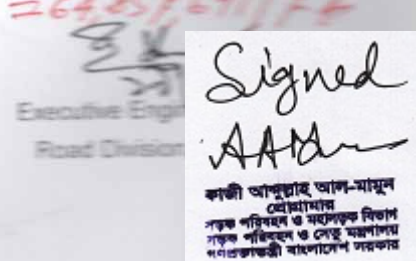 Executive Engi
Road Division
Signed
কাজী আব্দুল্লাহ আল-মামুন
প্রোগ্রামার
সড়ক পরিবহন ও মহাসড়ক বিভাগ
সড়ক পরিবহন ও সেতু মন্ত্রণালয়
গণপ্রজাতন্ত্রী বাংলাদেশ সরকার